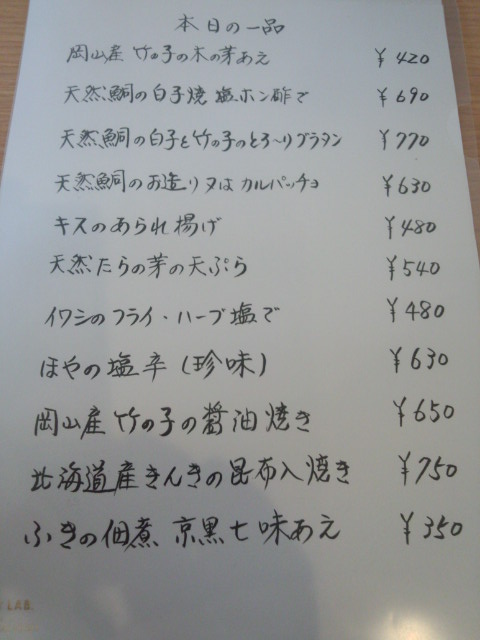 本日の一品
岡山産 竹の子の木の芽あえ ¥420
天然鯛の白子焼 塩ポン酢で ¥690
天然鯛の白子と竹の子のとろ〜りグラタン ¥770
天然鯛のお造り又は カルパッチョ ¥630
キスのあられ揚げ ¥480
天然たらの芽の天ぷら ¥540
イワシのフライ・ハーブ塩で ¥480
ほやの塩辛(珍味) ¥630
岡山産 竹の子の醤油焼き ¥650
北海道産きんきの昆布入焼き ¥750
ふきの佃煮 京黒七味あえ ¥350
LAB.